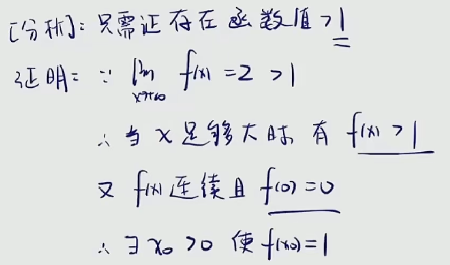 [分析]: 只需证存在函数值>1
证明: ∵ lim f(x) = 2 > 1
x→+∞
∴ 当 x 足够大时 有 f(x) > 1
又 f(x) 连续且 f(0) = 0
∴ ∃ x₀ > 0 使 f(x₀) = 1